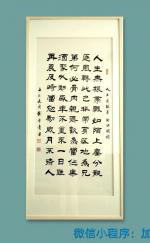 人生無根蒂飄如陌上塵分散
逐風轉此已非常身落地為兄
弟何必骨肉親得歡當作樂斗
酒聚比鄰盛年不重來一日難
再晨及時當勉勵歲月不待人
微信小程序：加